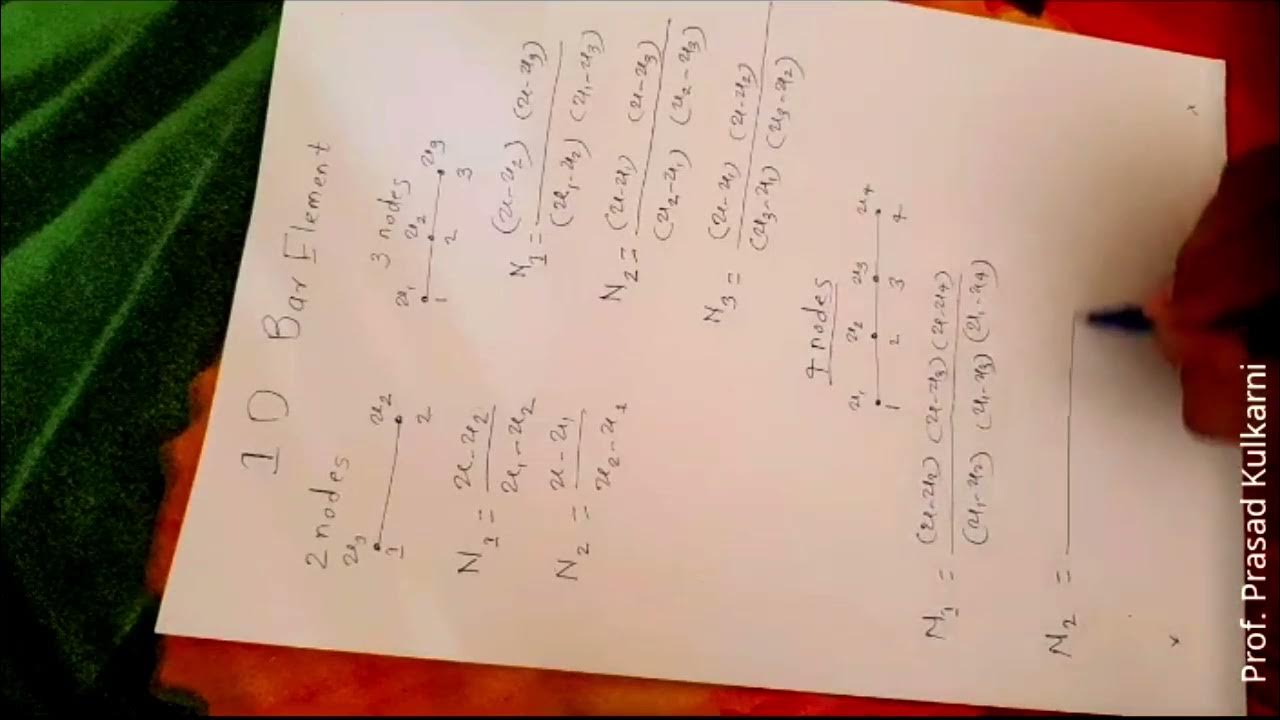 1 D Bar Element
2 nodes
x₁ x₂
1 2
N₁ = x-x₂
x₁-x₂
N₂ = x-x₁
x₂-x₁
3 nodes
x₁ x₂ x₃
1 2 3
N₁ = (x-x₂) (x-x₃)
(x₁-x₂) (x₁-x₃)
N₂ = (x-x₁) (x-x₃)
(x₂-x₁) (x₂-x₃)
N₃ = (x-x₁) (x-x₂)
(x₃-x₁) (x₃-x₂)
4 nodes
x₁ x₂ x₃ x₄
1 2 3 4
N₁ = (x-x₂) (x-x₃) (x-x₄)
(x₁-x₂) (x₁-x₃) (x₁-x₄)
N₂ =
Prof. Prasad Kulkarni